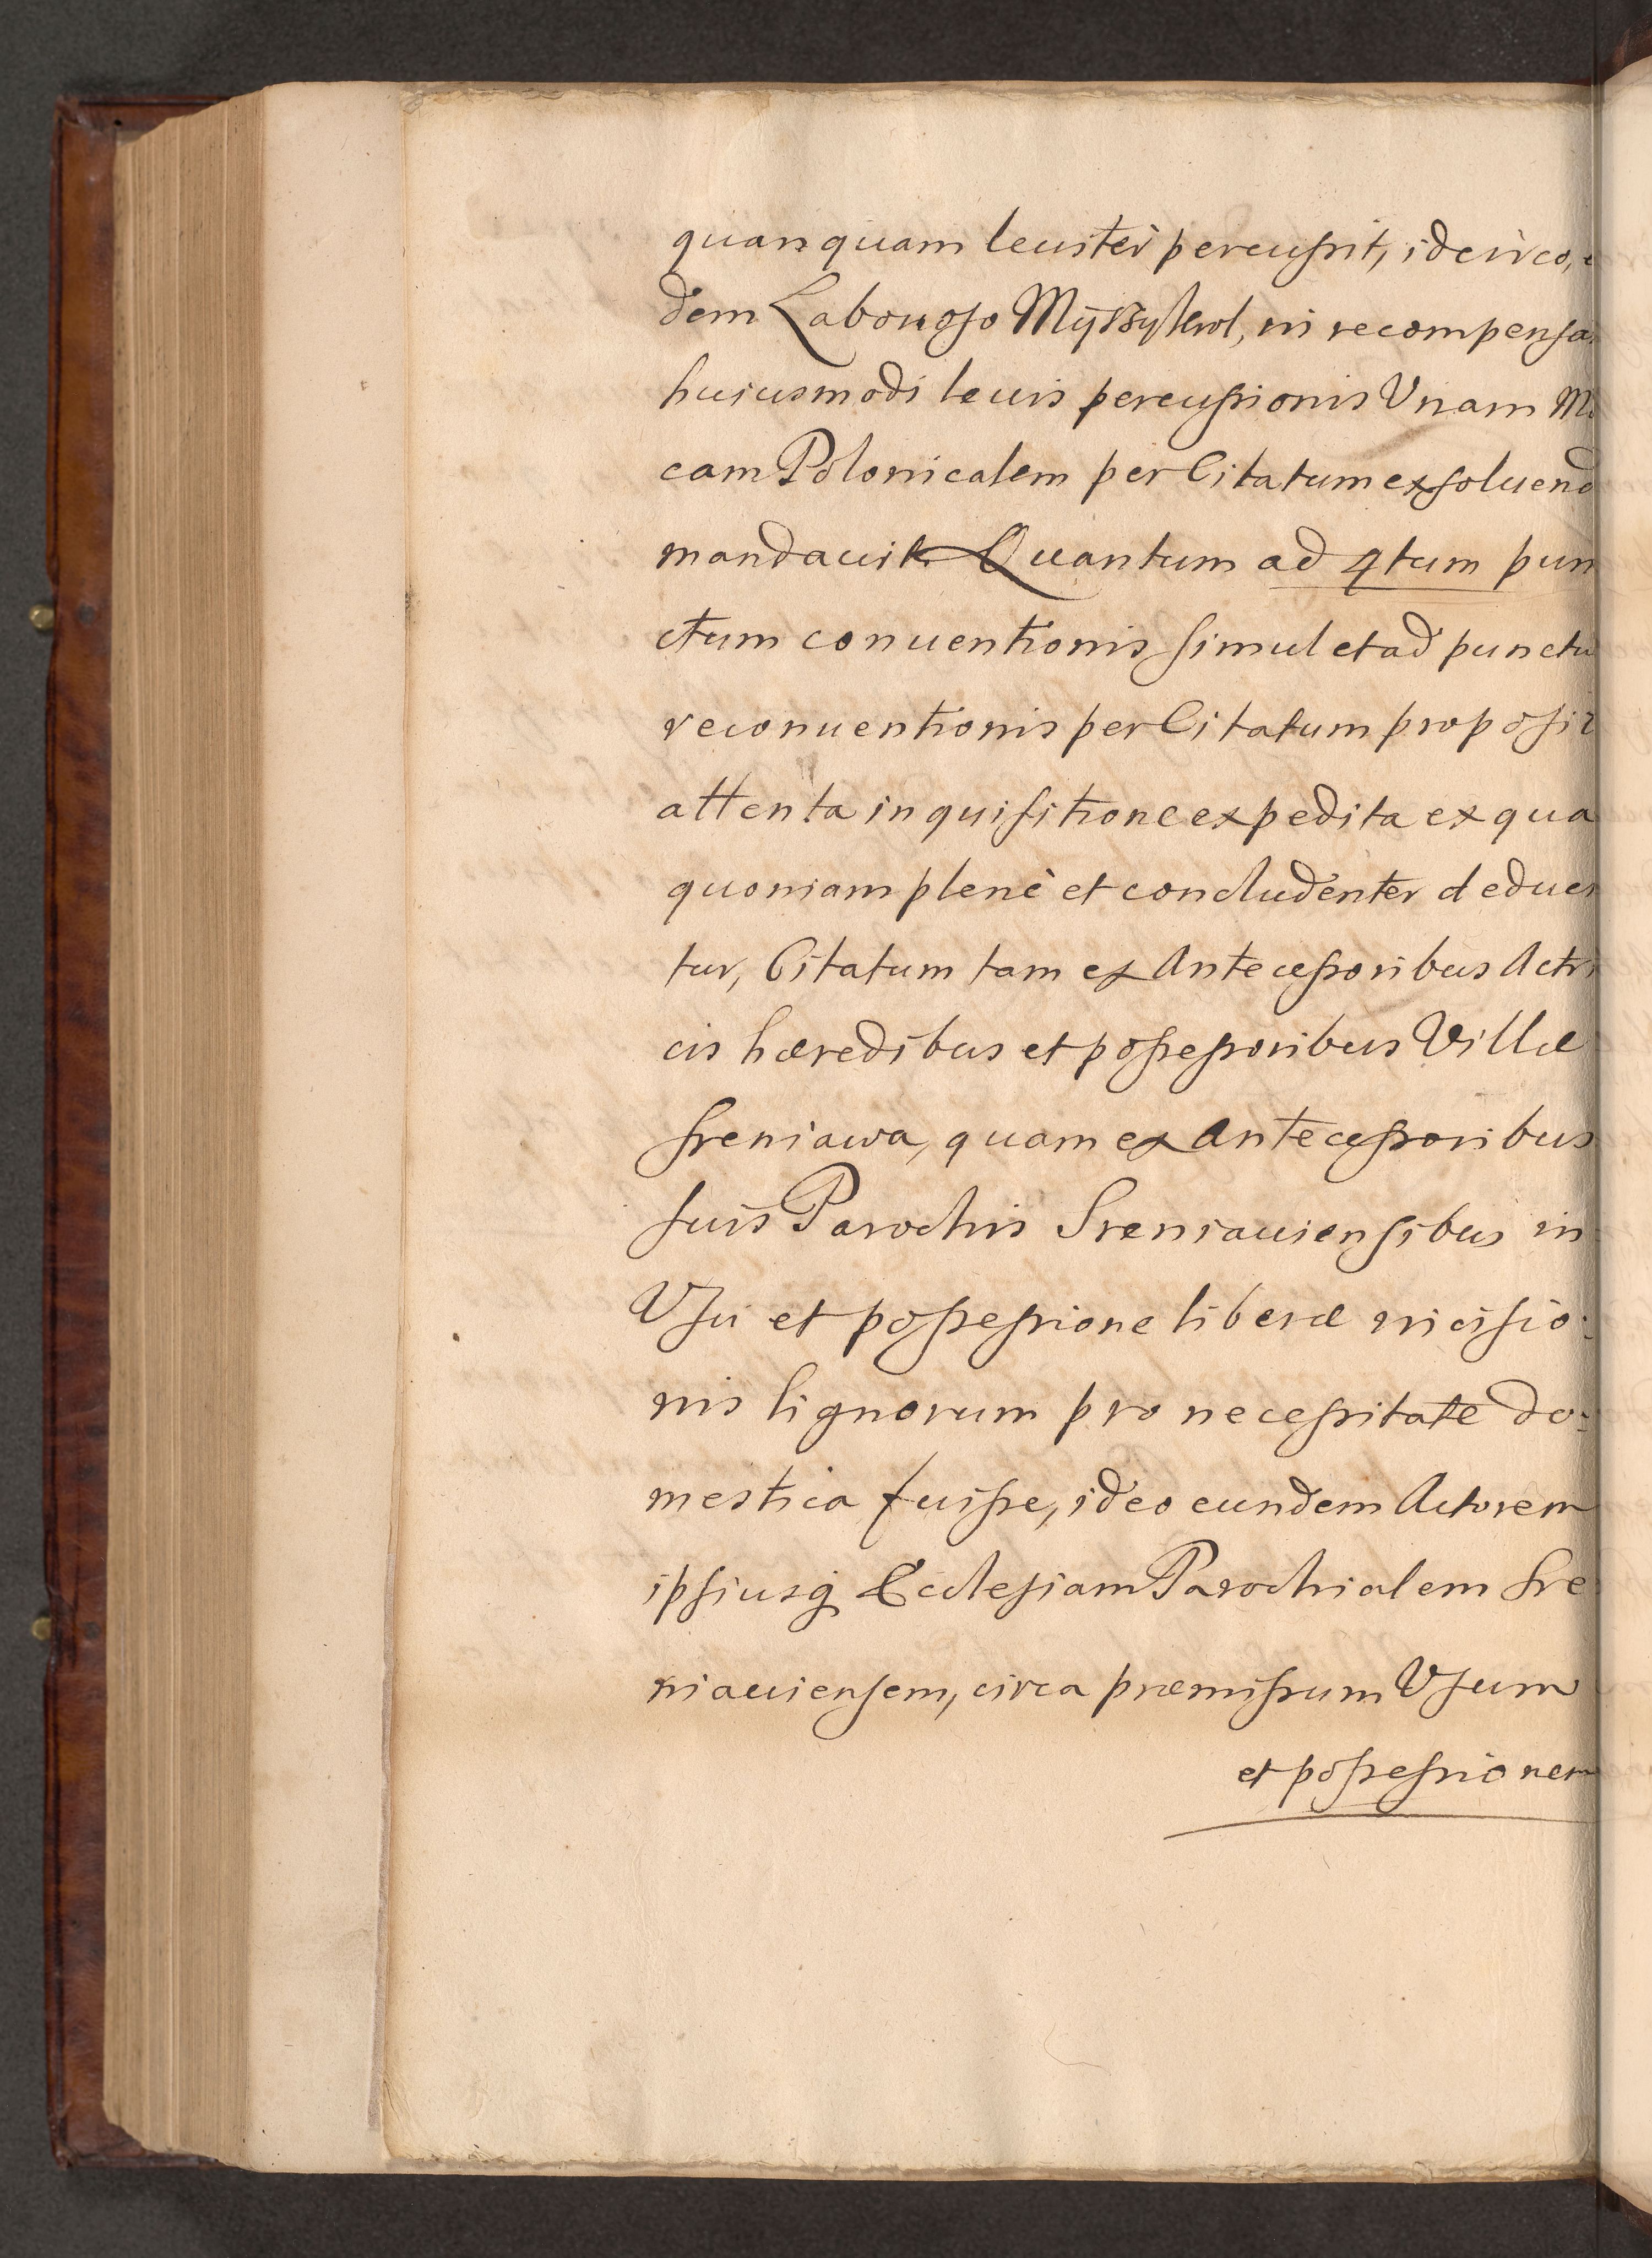 quanquam leuiter percussit, idcirco, e
dem Laborioso Myszykrol, in recompensa
huiusmodi leuis percussionis Vnam M
cam Polonicalem per Citatum exsoluend
mandauit. Quantum ad 4tum pun
ctum conuentionis simul et ad punctu
reconuentionis per Citatum proposit
attenta inquisitione expedita ex qua
quoniam plenè et concludenter deduci
tur, Citatum tam ex Antecessoribus Actri
cis hæredibus et possessoribus Villæ
Sreniawa, quam ex Antecessoribus
suis Parochis Sreniauiensibus in
Vsu et possessione liberæ incisio:
nis lignorum pro necessitate do:
mestica fuisse, ideo eundem Actorem
ipsiusq Ecclesiam Parochialem Sre
niauiensem, circa præmissum Vsum
et possessionem